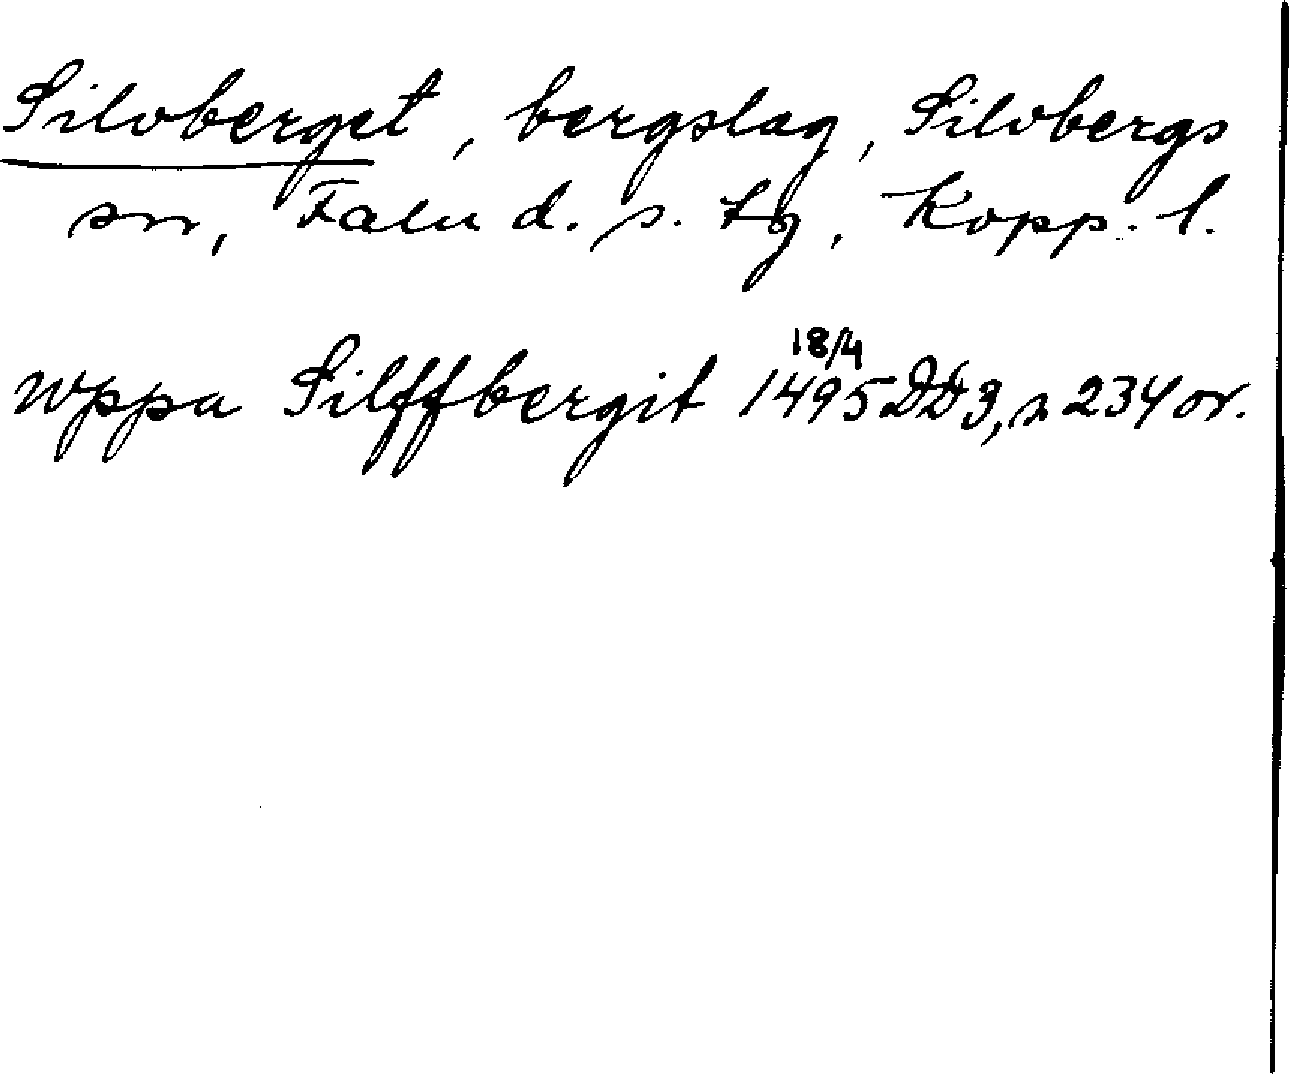 Silvberget, bergslag, Silvbergs
sn, Falu d. s. tg, Kopp. l.
wppa Silffbergit 18/4 1495 DD 3, n 234 or.